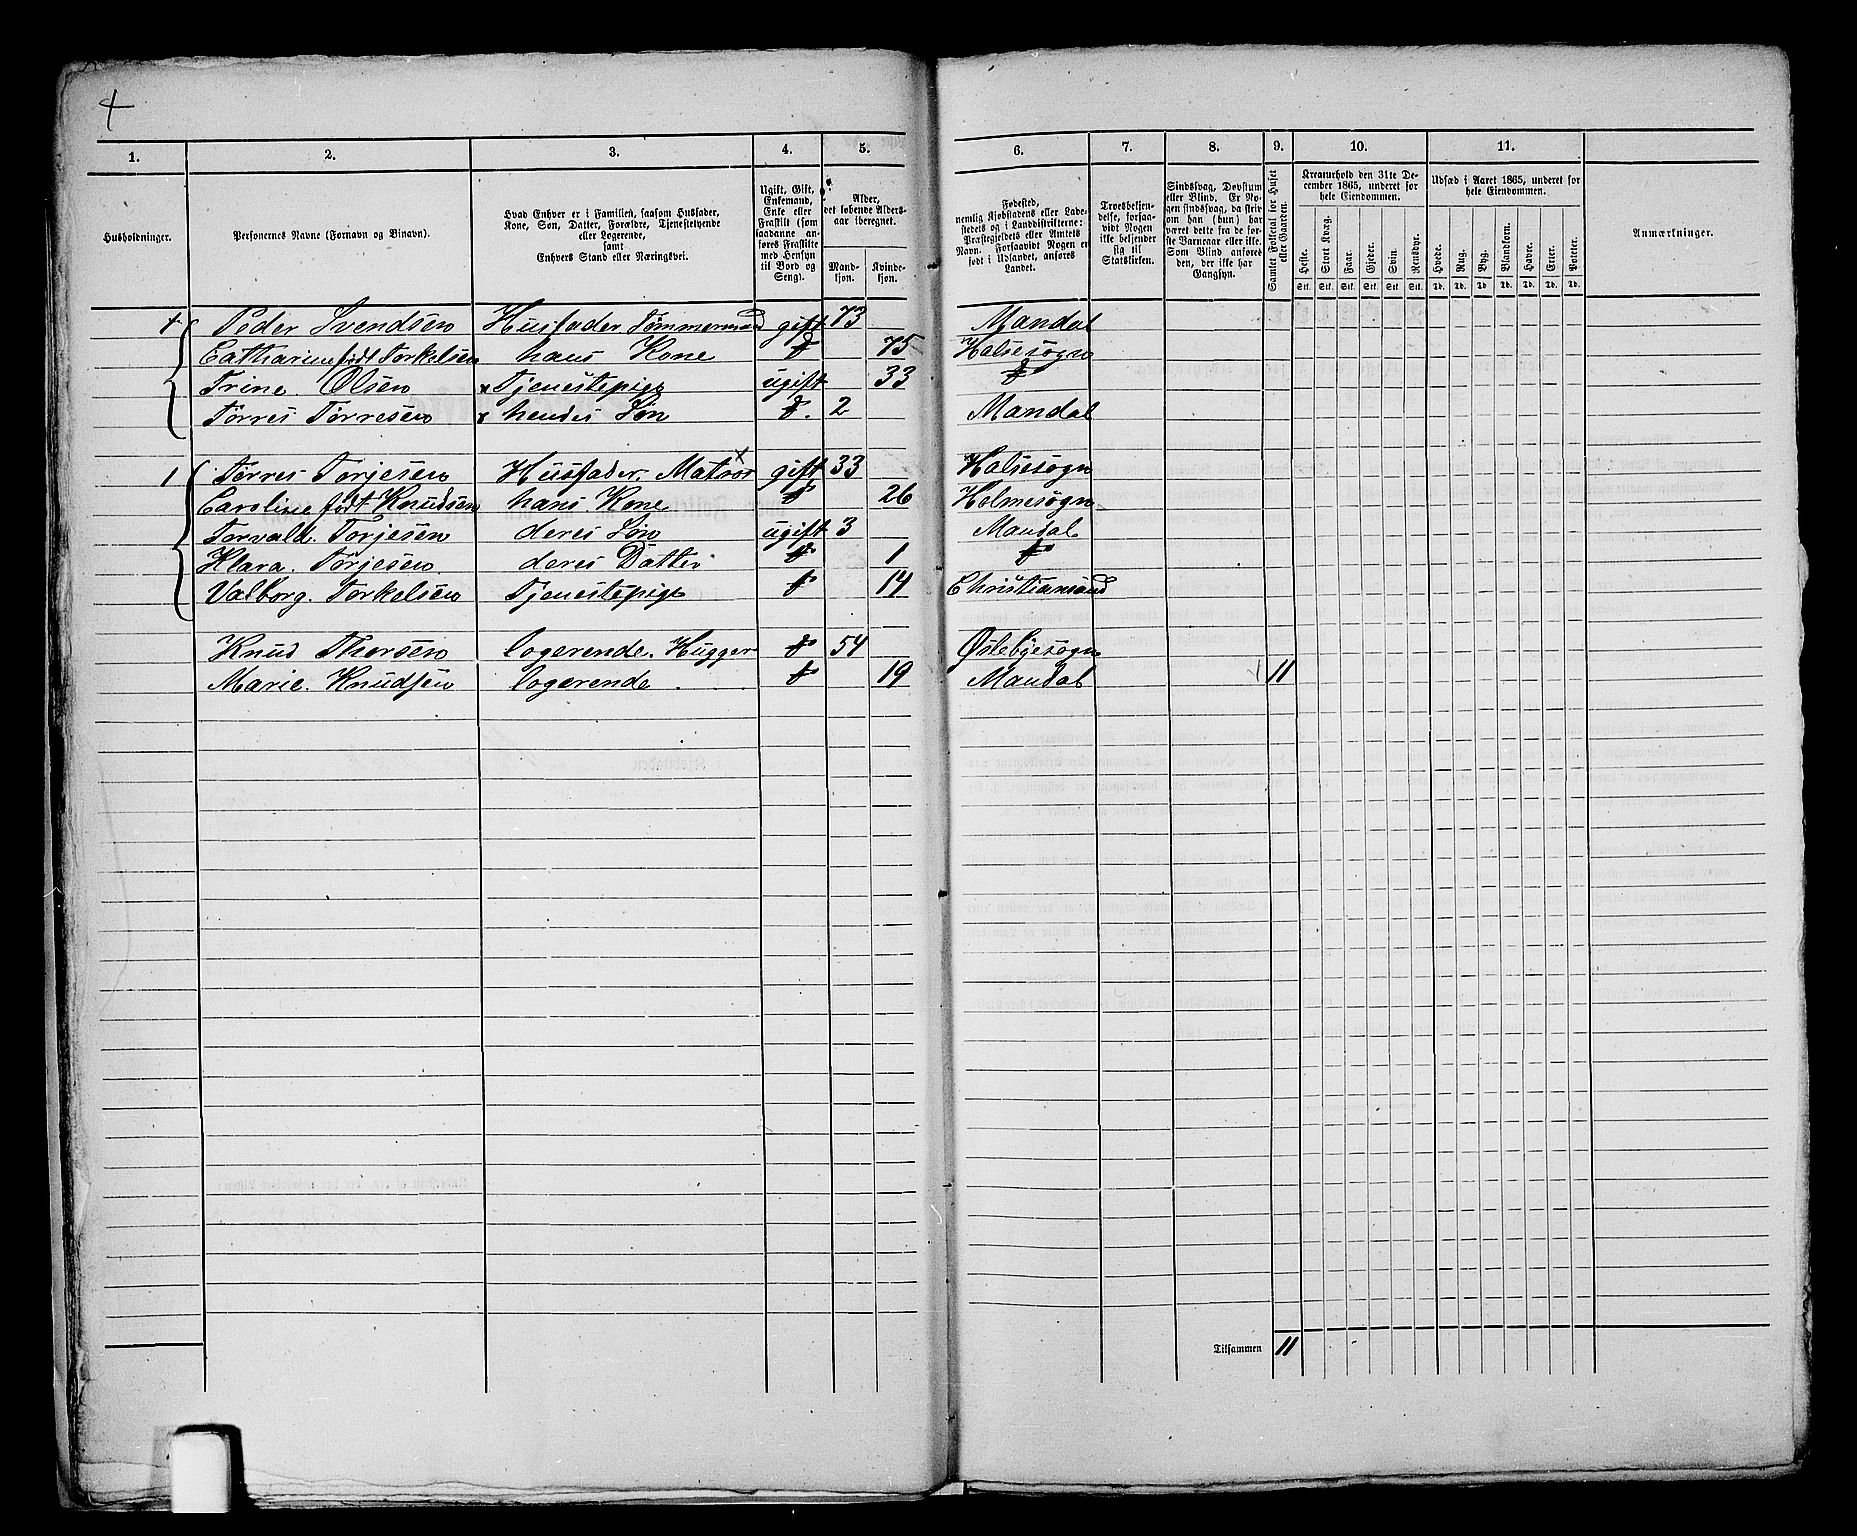 4
1. 2. 3. 4. 5. 6. 7. 8. 9. 10. 11.
Husholdninger.
Personernes Navne (Fornavn og Binavn).
Hvad Enhver er i Familien, saasom Husfader,
Kone, Søn, Datter, Forældre, Tjenestetyende
eller Logerende,
samt
Enhvers Stand eller Næringsvei.
Ugift, Gift,
Enkemand,
Enke eller
Fraskilt (som
saadanne an-
føres Fraskilte
med Hensyn
til Bord og
Seng).
Alder,
det løbende Alders-
aar iberegnet.
Mand-
kjøn.
Kvinde-
kjøn.
Fødested,
nemlig Kjøbstadens eller Lade-
stedets og i Landdistrikterne:
Præstegjeldets eller Amtets
Navn. Forsaavidt Nogen er
født i Udlandet, anføres
Landet.
Troesbekjen-
delse, forsaa-
vidt Nogen
ikke bekjender
sig til
Statskirken.
Sindssvag, Døvstum
eller Blind. Er No-
gen sindssvag, da skriv
om han (hun) har
været dette fra de for-
ste Barneaar eller ikke.
Som Blind anføres
den, der ikke har
Gangsyn.
Samlet Folketal for Huset
eller Gaarden.
Kreaturhold den 31te De-
cember 1865, underet for
hele Eiendommen.
Heste. Stort Kvæg. Faar. Gjeder. Svin Rensdyr.
Stk. Stk. Stk. Stk. Stk. Stk.
Udsæd i Aaret 1865, underet for
hele Eiendommen.
Hvede. Rug. Byg. Blandkorn. Havre. Erter. Poteter.
Td. Td. Td. Td. Td. Td. Td.
Anmærkninger.
+ Peder Svendsen Husfader Tømmermand gift 73 Mandal
Catharine født Torkelsen hans Kone 75 Halsesogn
Trine. Olsen x Tjenestepige ugift 33
Tørres Tørresen x hendes Søn 2 Mandal
1 Tørres Torjesen Husfader. Matros x gift 33 Halsesogn
Caroline født Knudsen hans Kone 26 Holmesogn
Torvald. Torjesen deres Søn ugift 3 Mandal
Klara. Torjesen deres Datter 1
Valborg. Torkelsen Tjenestepige 14 Christiansand
Knud Thorsen logerende. Hugger 54 Øslebysogn
Marie. Knudsen logerende 19 Mandal 11
Tilsammen 11